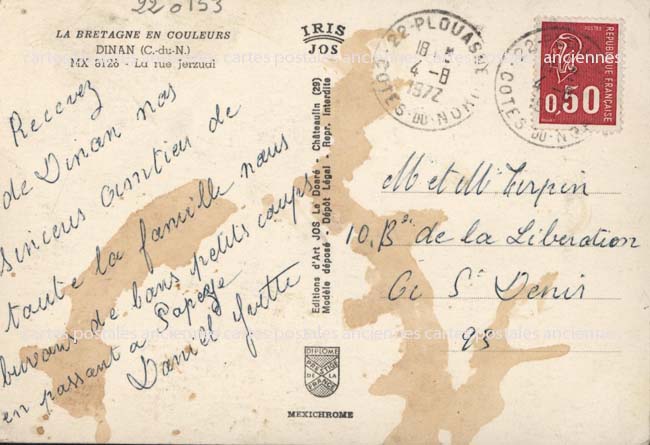 220153
LA BRETAGNE EN COULEURS
DINAN (C.-du-N.)
MX 8126 - La rue Jerzual
IRIS
JOS
Recevez
de Dinan nos
sincères amitiés de
toute la famille nous
buvons de bons petits coups
en passant a Papeye
Daniel Yvette
Editions d'Art JOS Le Doaré - Châteaulin (29)
Modèle déposé - Dépôt Légal - Repr. Interdite
DIPLOME
PRESTIGE
DE LA
FRANCE
MEXICHROME
22-PLOUASNE
18 H
4 -8
1972
COTES-DU-NORD
POSTES
REPUBLIQUE FRANCAISE
0,50
M et Mme Terpin
10. Bd de la Libération
St Denis
93
cartes postales anciennes